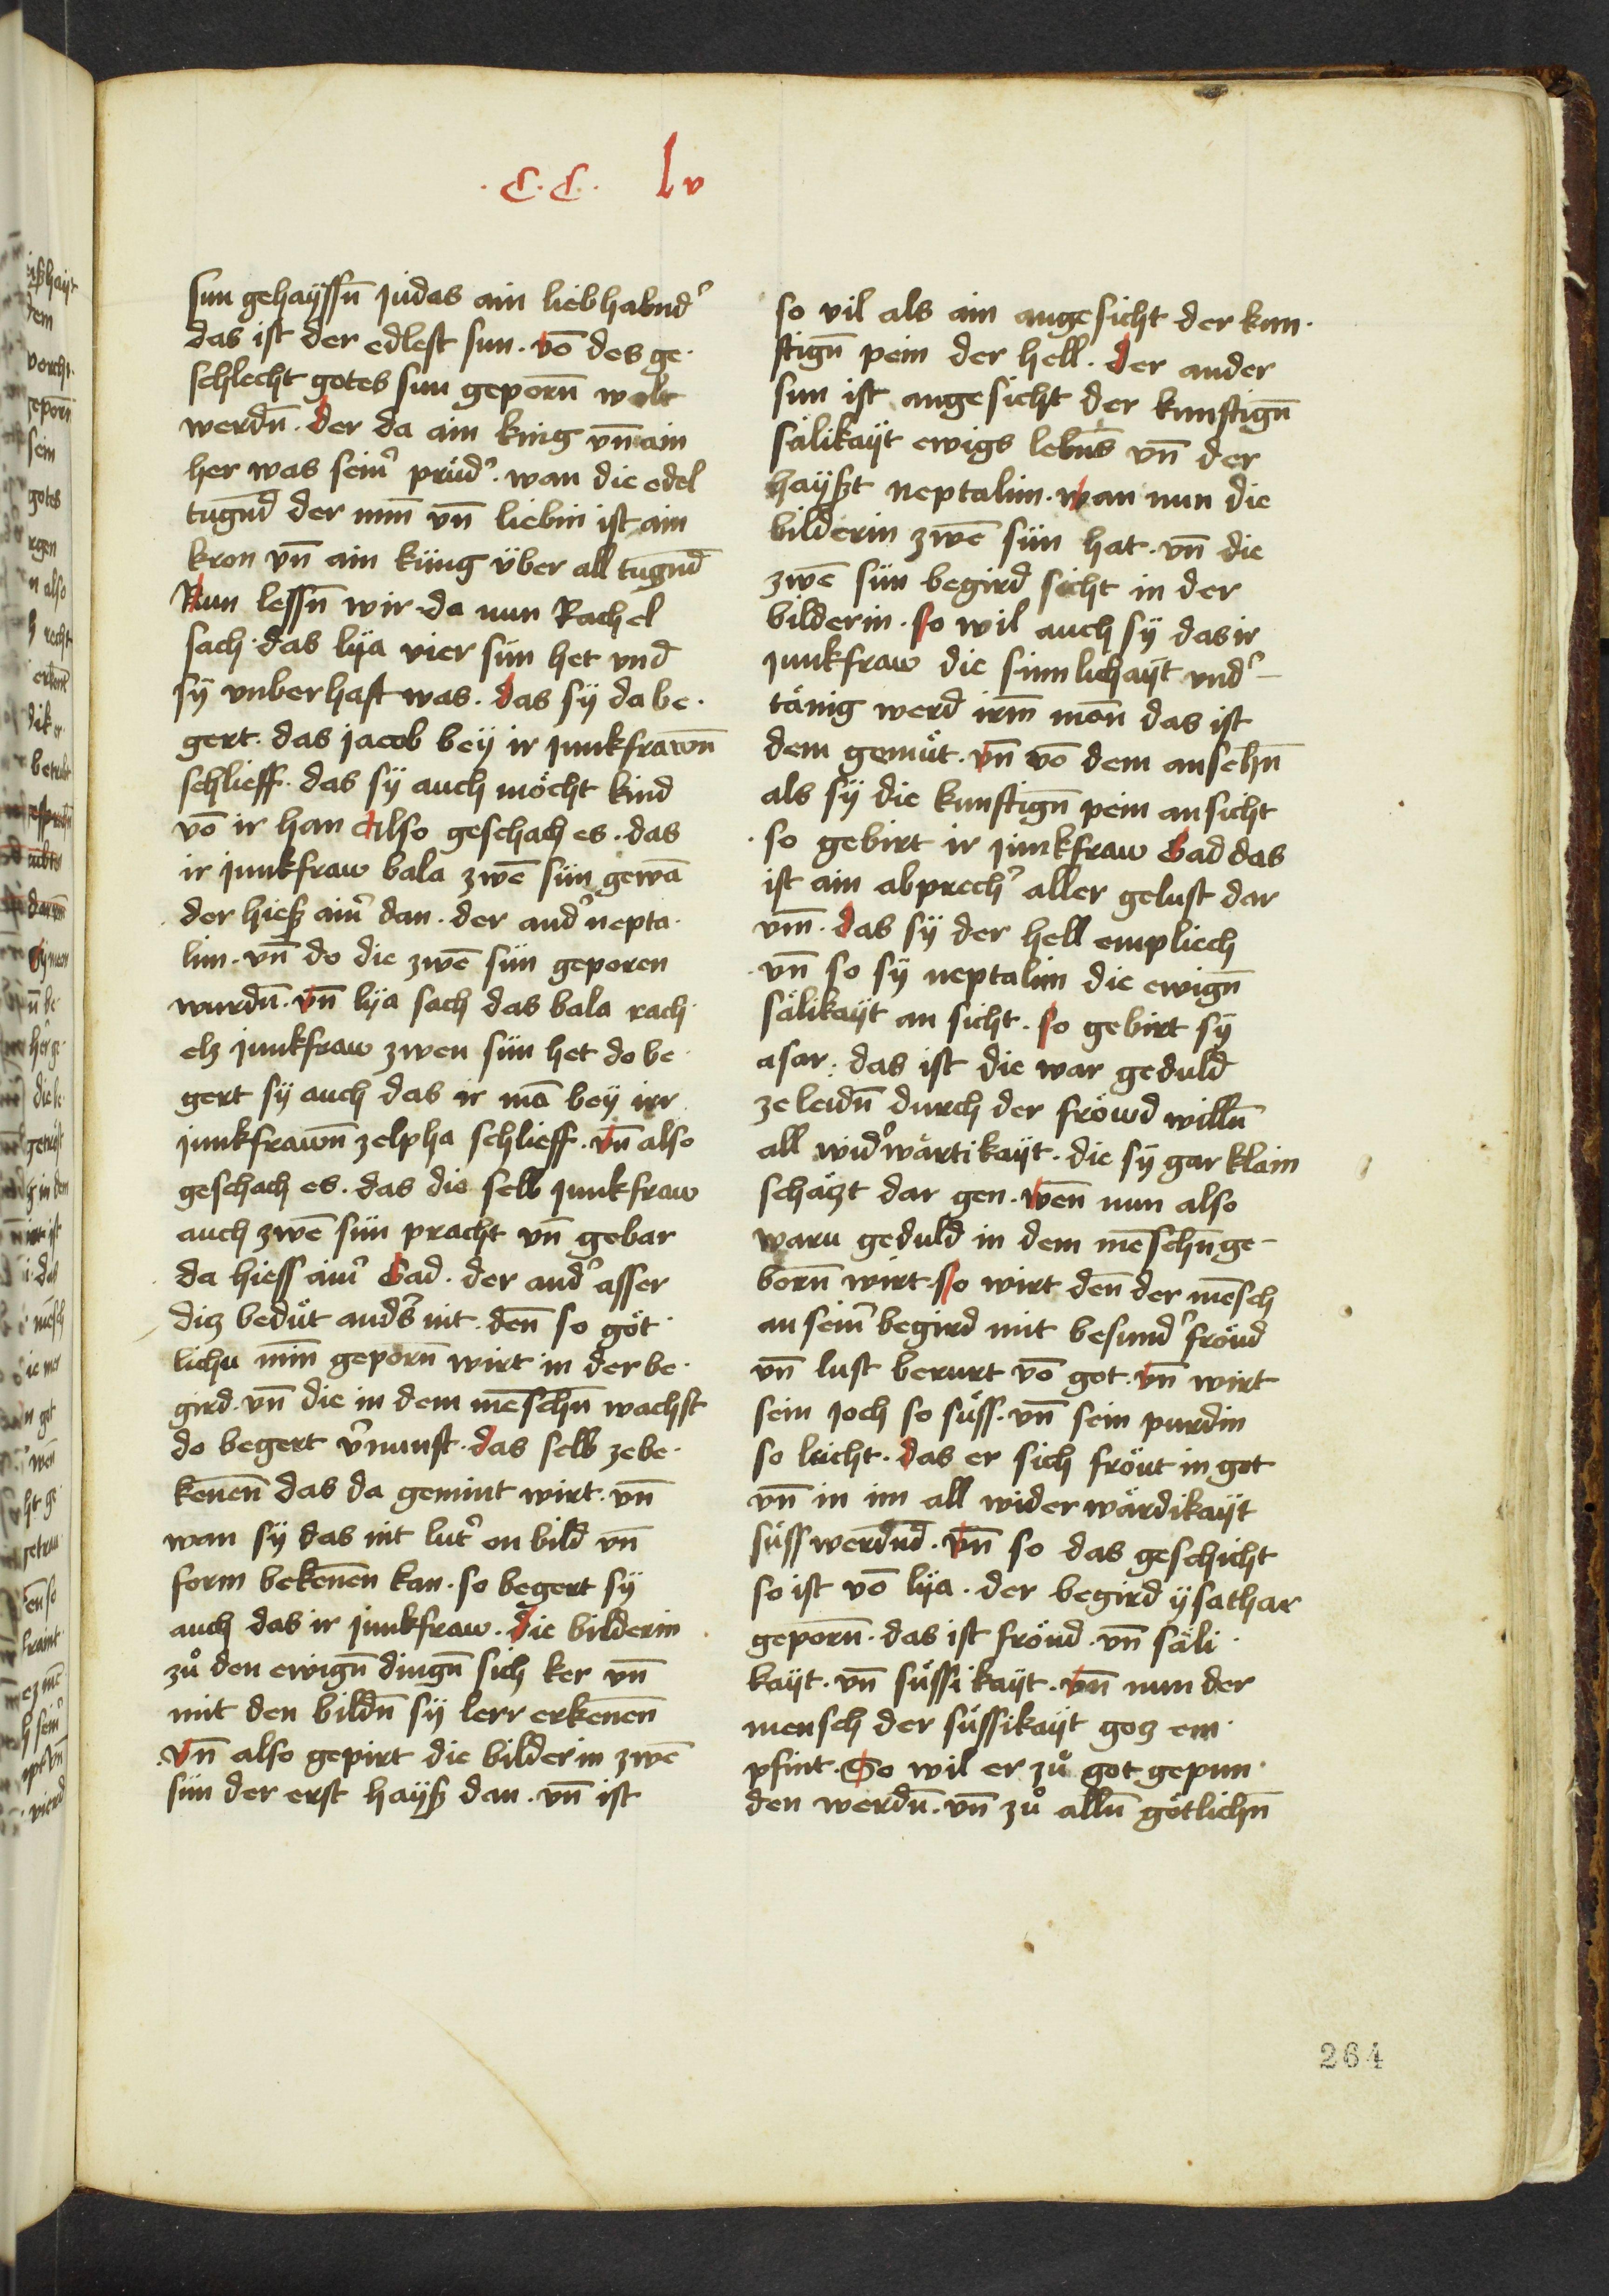 .C.C. lv
sun gehayssn̄ judas ain liebhabnd᷑
das ist der edlest sun. vō des ge-
schlecht gotes sun geporn̄ wolt
werdn̄. der da ain knig vn̄ ain
her was sein᷑ prüd᷑. wan die edel
tugnd̄ der min̄ vn̄ liebin ist ain
kron vn̄ ain küng über all tugnd̄
Nun lessn̄ wir da nun Rachel
sach. das lÿa vier sün het vnd
sÿ vnberhaft was. das sÿ da be-
gert. das jacob beÿ ir junkfrawn̄
schlieff. das sÿ auch möcht kind
vō ir han Also geschach es. das
ir junkfraw bala zwē sün gewā
der hieß ain᷑ dan. der and᷑ nepta-
lim. vn̄ do die zwē sün geporen
wurdn̄. vn̄ lÿa sach das bala rach-
elz junkfraw zwen sün het do be-
gert sÿ auch das ir mā beÿ irr
junkfrawn̄ zelpha schlieff. vn̄ also
geschach es. das die selb junkfraw
auch zwē sün pracht vn̄ gebar
da hiess ain᷑ Gad. der and᷑ asser
diz bedüt and᷑s nit. den̄ so göt-
lichu min̄ geporn̄ wirt in der be-
gird. vn̄ die in dem mēschn̄ wachst
do begert v᷑nunft. das selb ze be-
kenen̄ das da gemint wirt. vn̄
wan sÿ das nit lut᷑ on bild vn̄
form bekenen̄ kan. so begert sÿ
auch das ir junkfraw. die bilderin
zů den ewign̄ dingn̄ sich ker vn̄
mit den bildn̄ sÿ lerr erkenen̄
vn̄ also gepirt die bilderin zwē
sün der erst haÿß dan. vn̄ ist
so vil als ain angesicht der kun-
ftign̄ pein der hell. der ander
sun ist angesicht der kunftign̄
sälikaÿt ewigs lebn̄s vn̄ der
haÿßt neptalim. wan nun die
bilderin zwē sün hat. vn̄ die
zwē sün begird sicht in der
bilderin. so wil auch sÿ das ir
junkfraw die sinnlichaÿt vnd᷑-
tänig werd irm̄ mon̄ das ist
dem gemüt. vn̄ vō dem ansehn̄
als sÿ die kunftign̄ pein ansicht
so gebirt ir junkfraw Gad das
ist ain abprech᷑ aller gelust dar
vm̄. das sÿ der hell empfliech
vn̄ so sÿ neptalim die ewign̄
sälikaÿt an sicht. so gebirt sÿ
asar: das ist die war geduld
ze leidn̄ durch der fröwd willn̄
all wid᷑wärtikaÿt. die sÿ gar klain
schäczt dar gen. wen̄ nun also
waru geduld in dem mēschn̄ ge-
born̄ wirt. so wirt den̄ der mēsch
an sein᷑ begird mit besund᷑ fröud
vn̄ lust berurt vō got. vn̄ wirt
sein joch so süss. vn̄ sein purdin
so leicht. das er sich fröut in got
vn̄ in im all widerwärdikaÿt
süss werdnd̄. vn̄ so das geschicht
so ist vō lÿa. der begird ÿsathar
geporn̄. das ist fröud. vn̄ säli-
kaÿt. vn̄ süssikaÿt. vn̄ nun der
mensch der süssikaÿt gotz em-
pfint. So wil er zů got gepun-
den werdn̄. vn̄ zů alln̄ götlichn̄
264